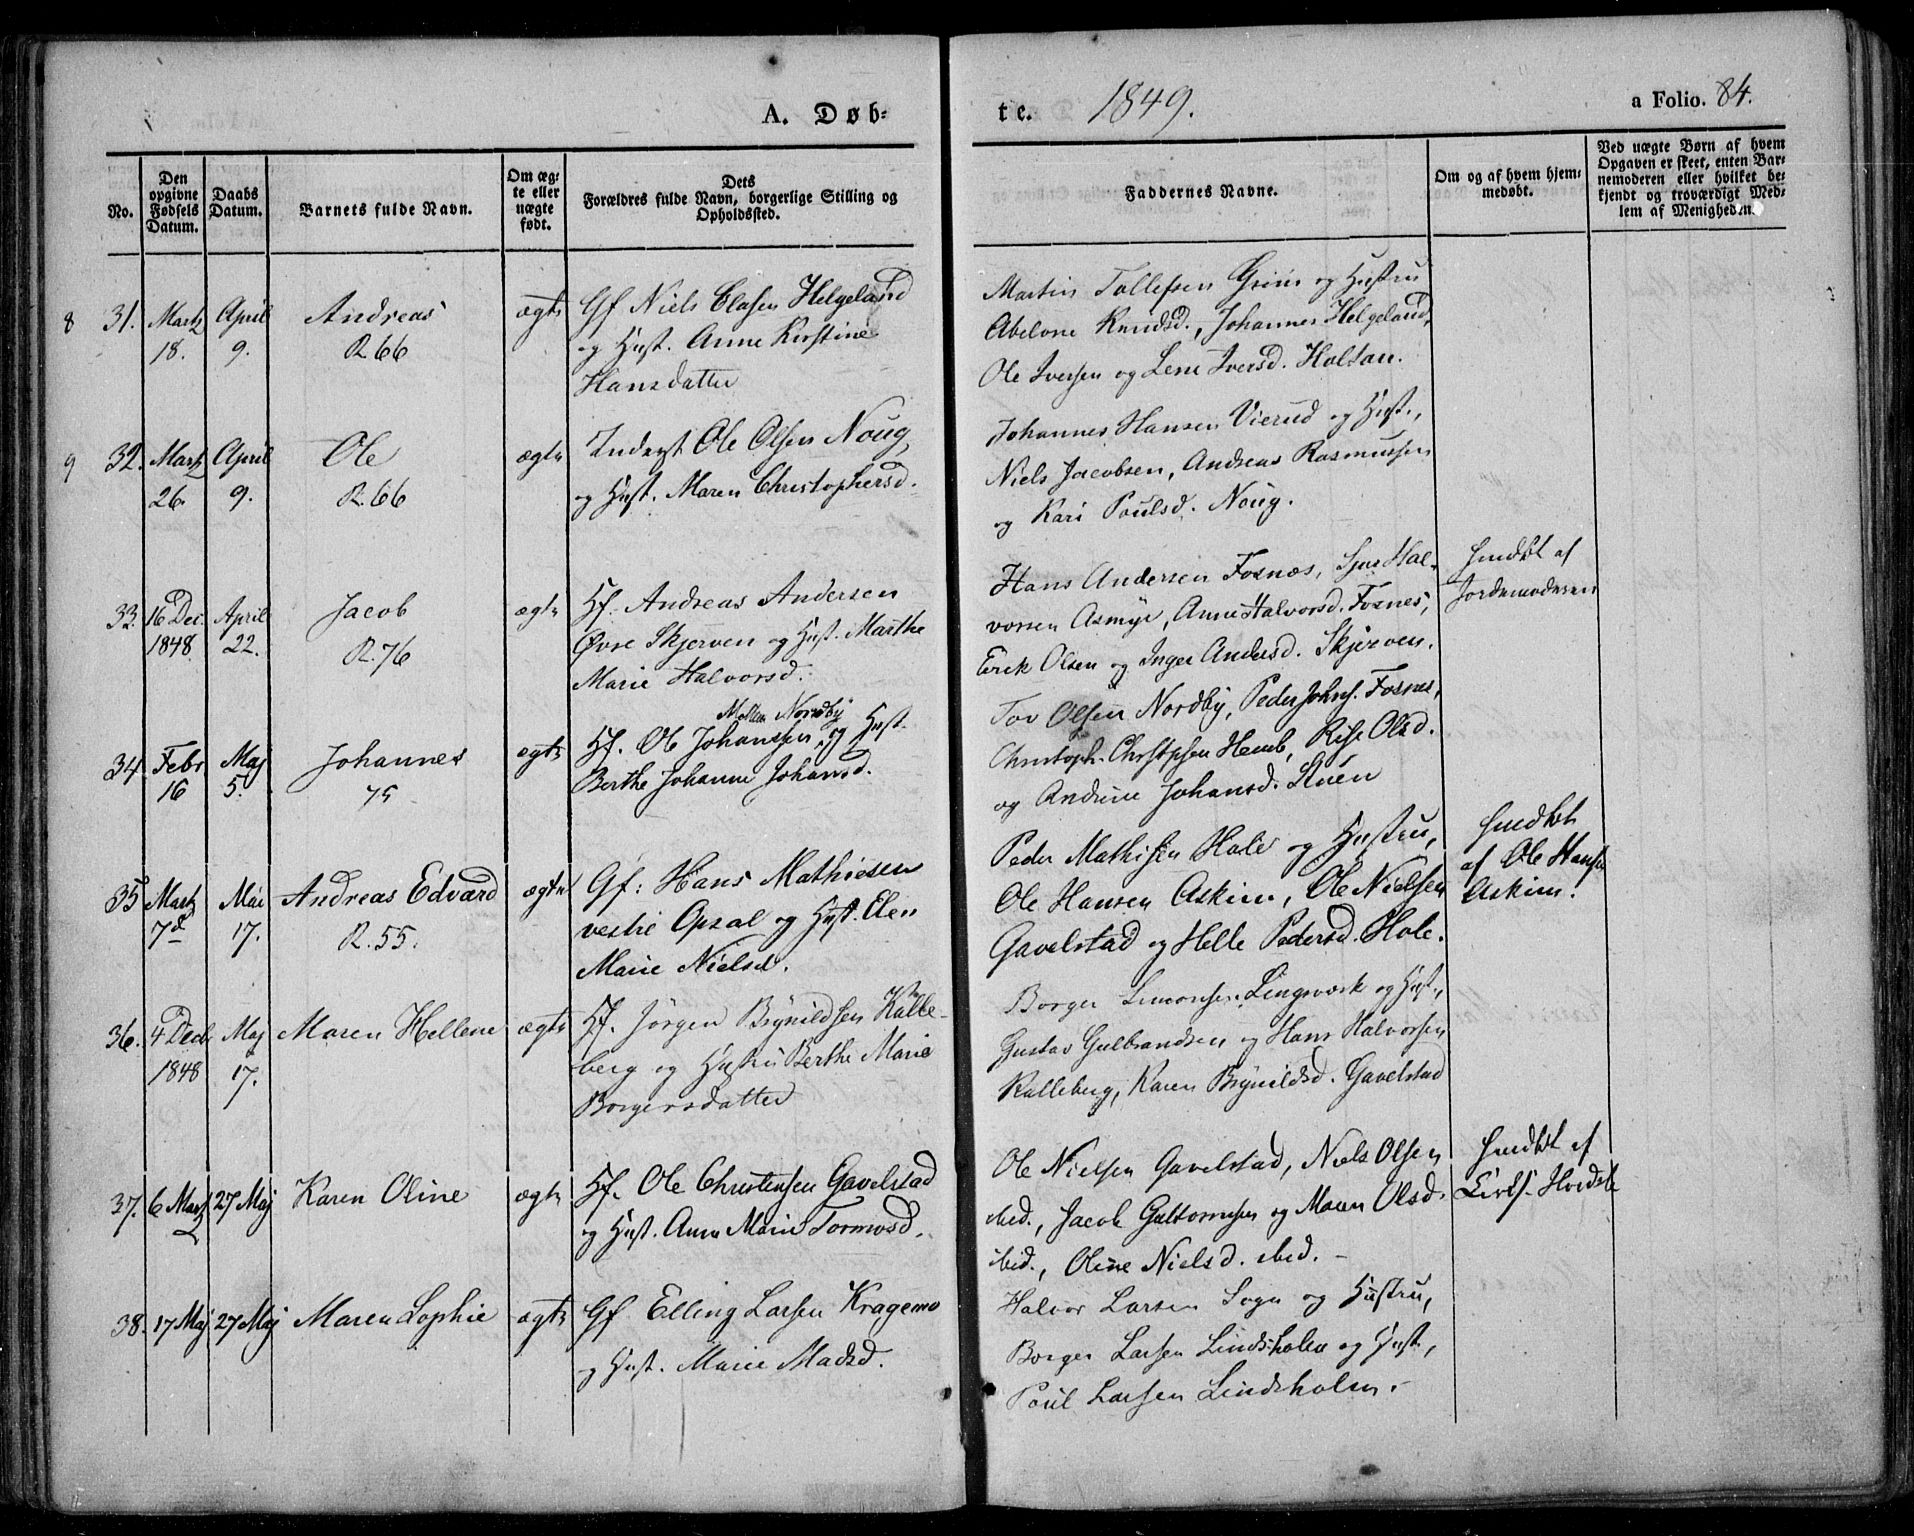 A. Døb-
te.
1849.
a Folio. 84.
No.
Den opgivne Fødsels Datum.
Daabs Datum.
Barnets fulde Navn.
Om ægte eller uægte født.
Dets Forældres fulde Navn, borgerlige Stilling og Opholdssted.
Faddernes Navne.
Om og af hvem hjemmedøbt.
Ved uægte Børn af hvem Opgaven er skeet, enten Barnemoderen eller hvilket bekjendt og troværdigt Medlem af Menigheden.
8 31. Marts April Andreas ægte Gf Niels Olasen Helgeland
18. 9. R. 66 og Hust. Anne Kirstine
Hansdatter
Martin Tollefsen Grim og Hustru
Abelone Knudsd., Johannes Helgeland,
Ole Iversen og Lene Iversd. Holtan.
9 32. Marts April Ole ægte Inderst Ole Olsen Noug,
26. 9. R. 66 og Hust. Maren Christophersd.
Johannes Hansen Vierud og Hust.,
Niels Jacobsen, Andreas Rasmussen
og Kari Poulsd. Noug.
33. 16 Dec. April Jacob ægte Hf. Andreas Andersen
1848. 22. R. 76 Øvre Skjerven og Hust. Marthe
Marie Halvorsd.
Hans Andersen Fosnæs, Hal-
vorsen Asmyr, Anne Halvorsd. Fosnes,
Erik Olsen og Inger Andersd. Skjerven.
hmdbt af
Jordemoderen
34. Febr Maj Johannes ægte Hf. Ole Johansen Nordby og Hust.
16 5. 75 Berthe Johanne Johansd.
Tov Olsen Nordby, Peder Johns. Fosnes,
Christoph. Christophsen Hemb, Olsd.
og Andrine Johansd. Stuen
35 Marts Mai Andreas Edvard ægte Gf: Hans Mathiesen
7d 17. R. 55. vestre Opsal og Hust. Elen
Marie Nielsd.
Peder Mathisen Hole og Hustru,
Ole Hansen Askim, Ole Nielsen
Gavelstad og Helle Pedersd. Hole.
hmdbt
af Ole Hansen
Askim.
36. 4 Decb Maj Maren Hellene ægte Hf. Jørgen Brynildsen Kalle-
1848 17. berg og Hustru Berthe Marie
Borgersdatter
Borger Simonsen Lingsverk og Hust.,
Gustav Gulbrandsen og Hans Halvorsen
Kalleberg, Karen Brynildsd. Gavelstad
37. 6 Marts 27 Maj Karen Oline ægte Hf. Ole Christensen Gavelstad
og Hust. Anne Marie Tormosd.
Ole Nielsen Gavelstad, Niels Olsen
ibid., Jacob Guttormsen og Maren Olsd.
ibid., Oline Nielsd. ibid. -
hmdbt af
38. 17 Maj 27 Maj Maren Sophie ægte Gf Elling Larsen Kragemo
og Hust. Marie Madsd.
Halvor Larsen Sogn og Hustru,
Borger Larsen Lindsholm og Hust.,
Poul Larsen Lindsholm. -